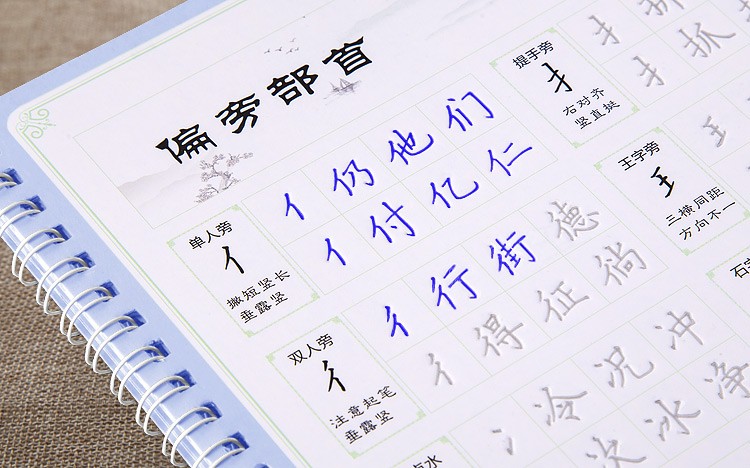 偏旁部首
单人旁
亻
撇短竖长
垂露竖
亻仍他们
亻付亿仁
双人旁
彳
注意起笔
垂露竖
彳行街德
彳得征徜
提手旁
扌
右对齐
竖直挺
扌抓
王字旁
王
三横同距
方向不一
王
石字
点水
冫冷况冲
次冰净